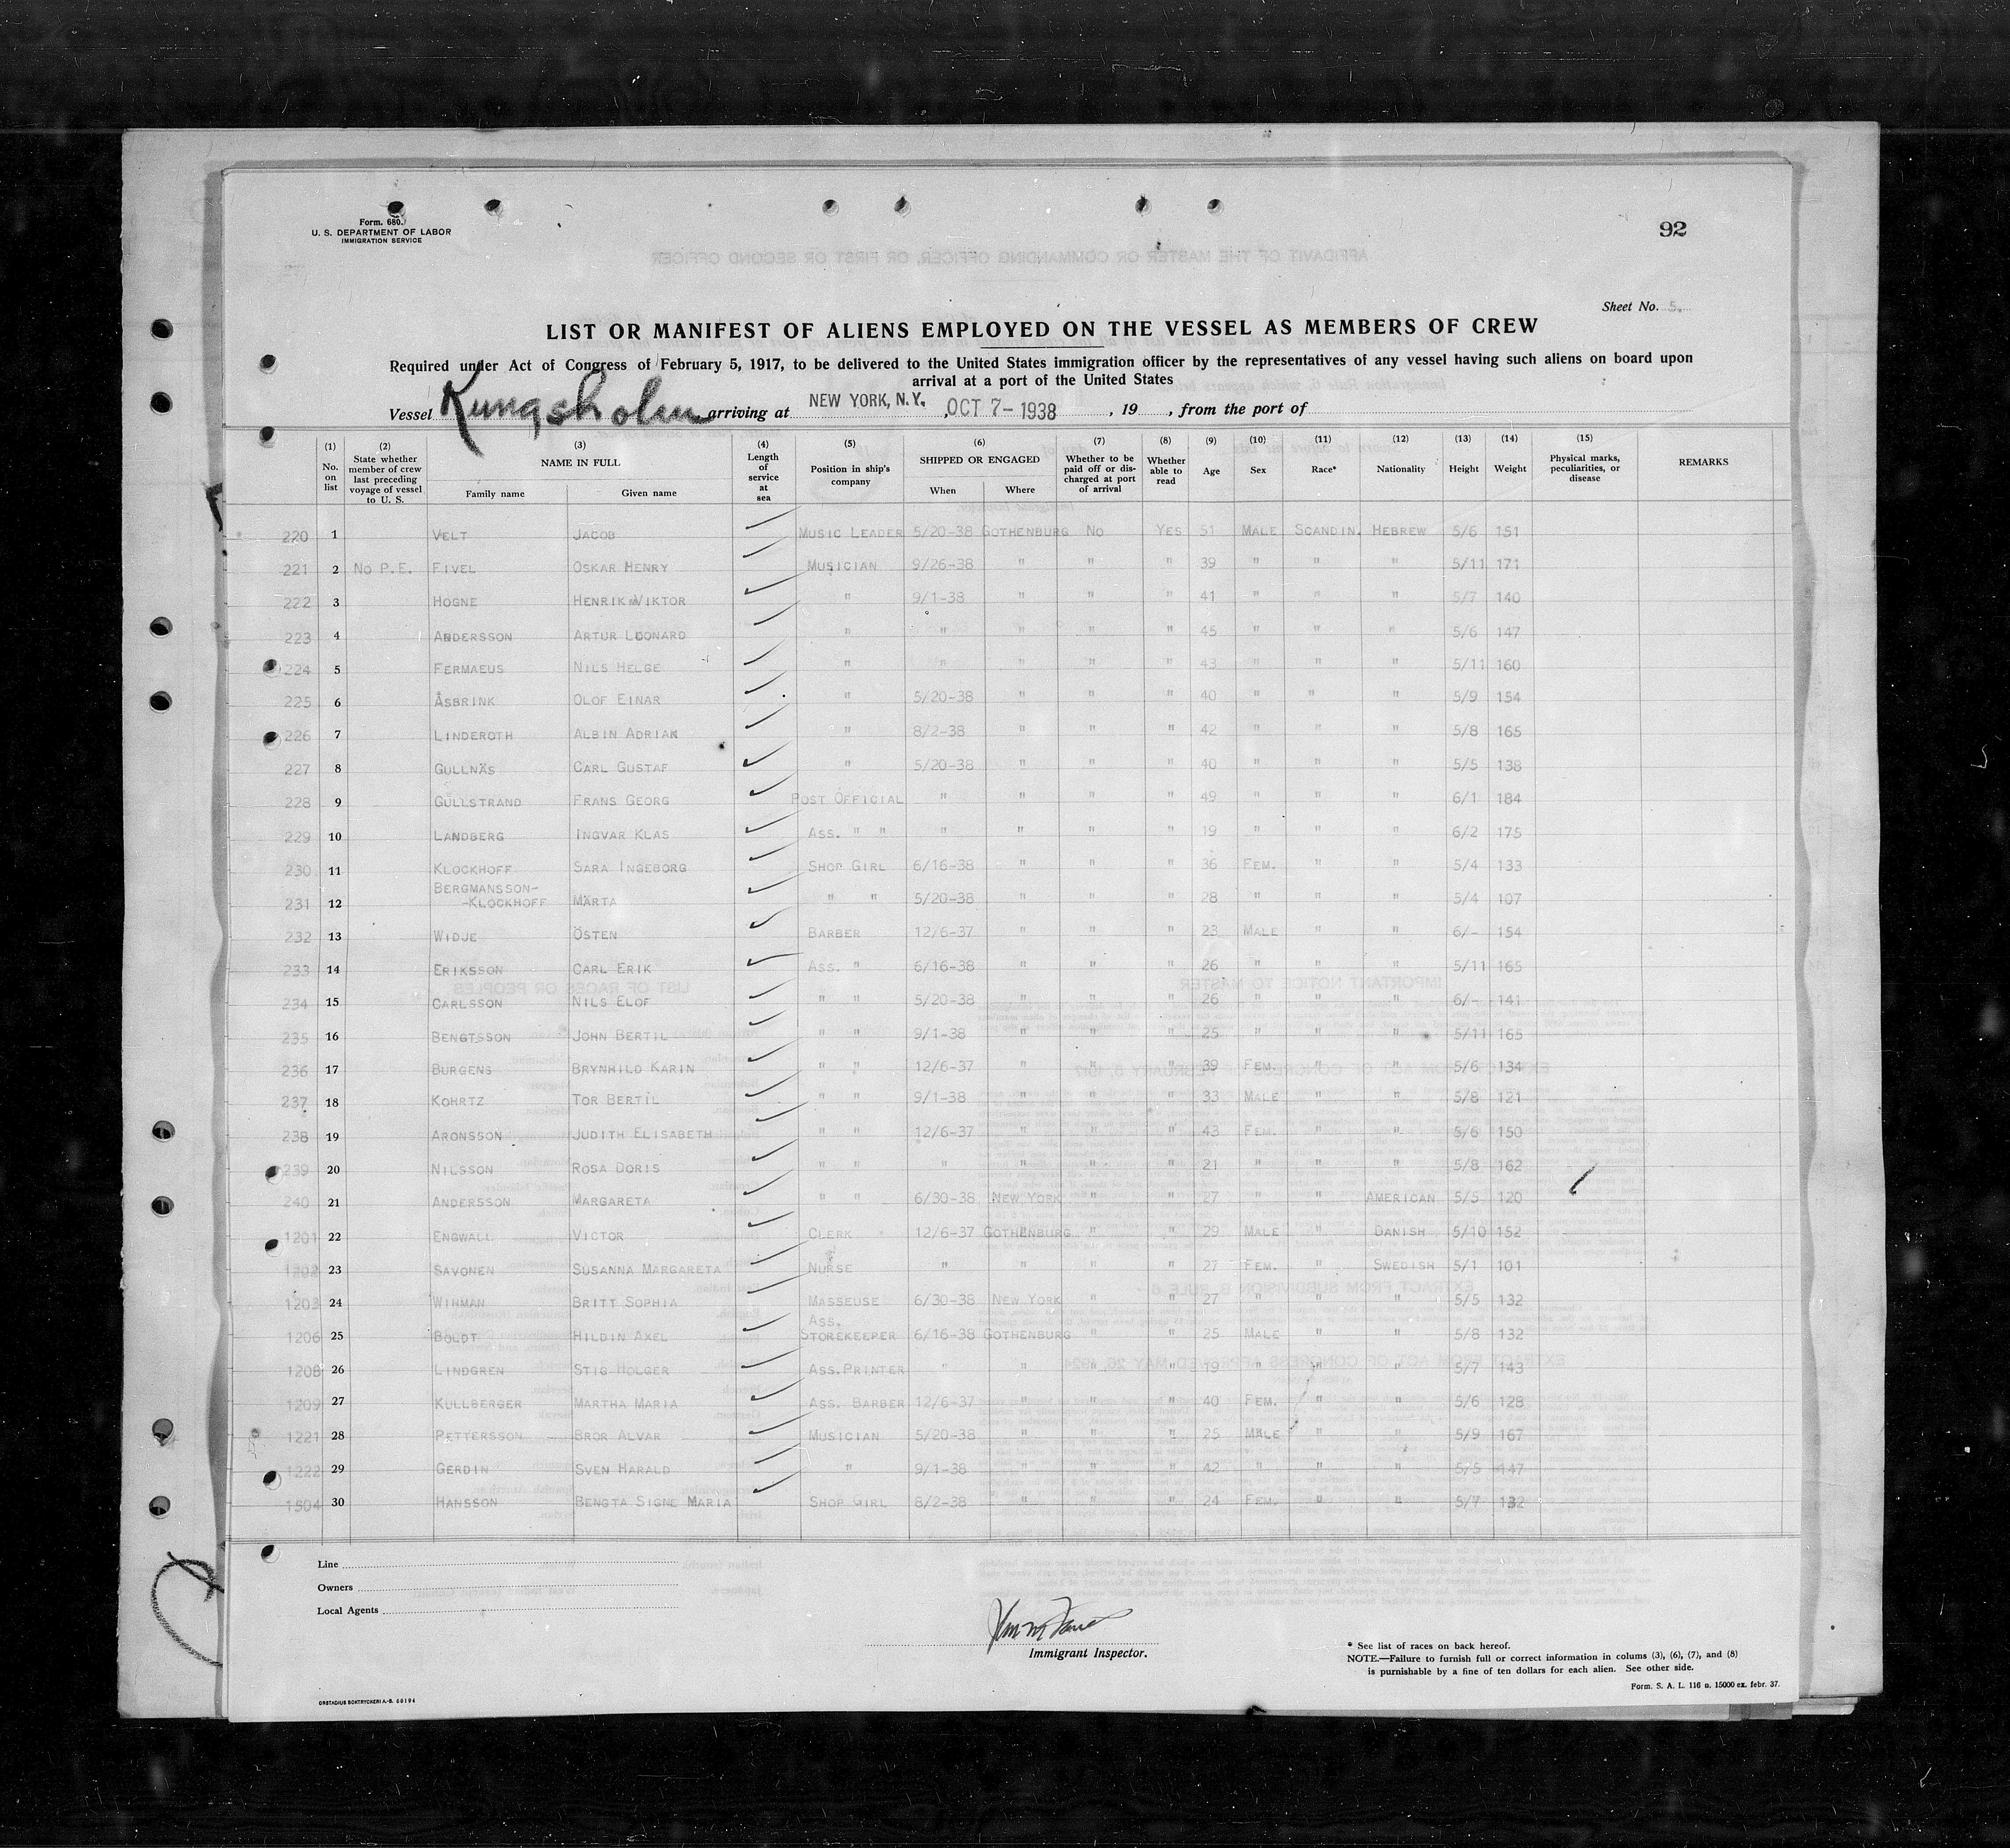 Form. 680.
U. S. DEPARTMENT OF LABOR
IMMIGRATION SERVICE
92
Sheet No. 5.
LIST OR MANIFEST OF ALIENS EMPLOYED ON THE VESSEL AS MEMBERS OF CREW
Required under Act of Congress of February 5, 1917, to be delivered to the United States immigration officer by the representatives of any vessel having such aliens on board upon
arrival at a port of the United States
Vessel Kungsholm arriving at NEW YORK, N.Y. , OCT 7-1938 , 19 , from the port of
(1) No. on list (2) State whether member of crew last preceding voyage of vessel to U. S. (3) NAME IN FULL Family name Given name (4) Length of service at sea (5) Position in ship's company (6) SHIPPED OR ENGAGED When Where (7) Whether to be paid off or discharged at port of arrival (8) Whether able to read (9) Age (10) Sex (11) Race* (12) Nationality (13) Height (14) Weight (15) Physical marks, peculiarities, or disease REMARKS
220 1 VELT JACOB MUSIC LEADER 5/20-38 GOTHENBURG NO YES 51 MALE SCANDIN. HEBREW 5/6 151
221 2 NO P.E. FIVEL OSKAR HENRY MUSICIAN 9/26-38 " " " 39 " " " 5/11 171
222 3 HOGNE HENRIK VIKTOR " 9/1-38 " " " 41 " " " 5/7 140
223 4 ANDERSSON ARTUR LEONARD " " " " " 45 " " " 5/6 147
224 5 FERMAEUS NILS HELGE " " " " " 43 " " " 5/11 160
225 6 ÅSBRINK OLOF EINAR " 5/20-38 " " " 40 " " " 5/9 154
226 7 LINDEROTH ALBIN ADRIAN " 8/2-38 " " " 42 " " " 5/8 165
227 8 GULLNÄS CARL GUSTAF " 5/20-38 " " " 40 " " " 5/5 138
228 9 GULLSTRAND FRANS GEORG POST OFFICIAL " " " " 49 " " " 6/1 184
229 10 LANDBERG INGVAR KLAS ASS. " " " " " " 19 " " " 6/2 175
230 11 KLOCKHOFF SARA INGEBORG SHOP GIRL 6/16-38 " " " 36 FEM. " " 5/4 133
231 12 BERGMANSSON-
-KLOCKHOFF MÄRTA " " 5/20-38 " " " 28 " " " 5/4 107
232 13 WIDJE ÖSTEN BARBER 12/6-37 " " " 23 MALE " " 6/- 154
233 14 ERIKSSON CARL ERIK ASS. " 6/16-38 " " " 26 " " " 5/11 165
234 15 CARLSSON NILS ELOF " " 5/20-38 " " " 26 " " " 6/- 141
235 16 BENGTSSON JOHN BERTIL " " 9/1-38 " " " 25 " " " 5/11 165
236 17 BURGENS BRYNHILD KARIN " " 12/6-37 " " " 39 FEM. " " 5/6 134
237 18 KOHRTZ TOR BERTIL " " 9/1-38 " " " 33 MALE " " 5/8 121
238 19 ARONSSON JUDITH ELISABETH " " 12/6-37 " " " 43 FEM. " " 5/6 150
239 20 NILSSON ROSA DORIS " " " " " " 21 " " " 5/8 162
240 21 ANDERSSON MARGARETA " " 6/30-38 NEW YORK " " 27 " " AMERICAN 5/5 120
1201 22 ENGWALL VICTOR CLERK 12/6-37 GOTHENBURG " " 29 MALE " DANISH 5/10 152
1202 23 SAVONEN SUSANNA MARGARETA NURSE " " " " 27 FEM. " SWEDISH 5/1 101
1203 24 WIHMAN BRITT SOPHIA MASSEUSE 6/30-38 NEW YORK " " 27 " " " 5/5 132
1206 25 BOLDT HILDIN AXEL ASS. STOREKEEPER 6/16-38 GOTHENBURG " " 25 MALE " " 5/8 132
1208 26 LINDGREN STIG HOLGER ASS.PRINTER " " " " 19 " " " 5/7 143
1209 27 KULLBERGER MARTHA MARIA ASS. BARBER 12/6-37 " " " 40 FEM. " " 5/6 128
1221 28 PETTERSSON BROR ALVAR MUSICIAN 5/20-38 " " " 25 MALE " " 5/9 167
1222 29 GERDIN SVEN HARALD " 9/1-38 " " " 42 " " " 5/5 147
1504 30 HANSSON BENGTA SIGNE MARIA SHOP GIRL 8/2-38 " " " 24 FEM. " " 5/7 132
Line
Owners
Local Agents
Immigrant Inspector.
* See list of races on back hereof.
NOTE.—Failure to furnish full or correct information in colums (3), (6), (7), and (8)
is punishable by a fine of ten dollars for each alien. See other side.
Form. S. A. L. 116 a. 15000 ex. febr. 37.
ORSTADIUS BOKTRYCKERI A.-B. 60194